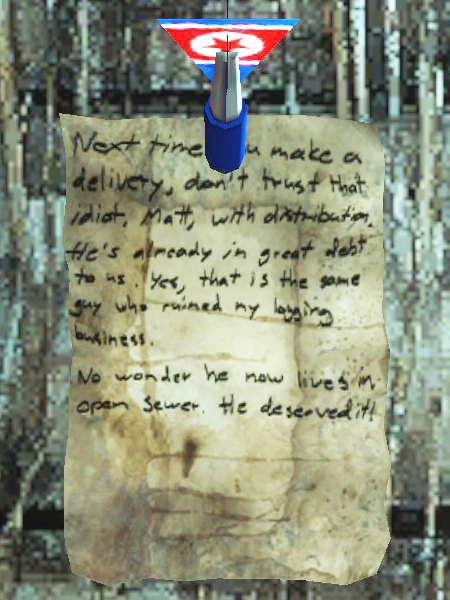 Next time u make a
delivery, don't trust that
idiot, Matt, with distribution.
He's already in great debt
to us. Yes, that is the same
guy who ruined my logging
business.
No wonder he now lives in
open sewer. He deserved it!